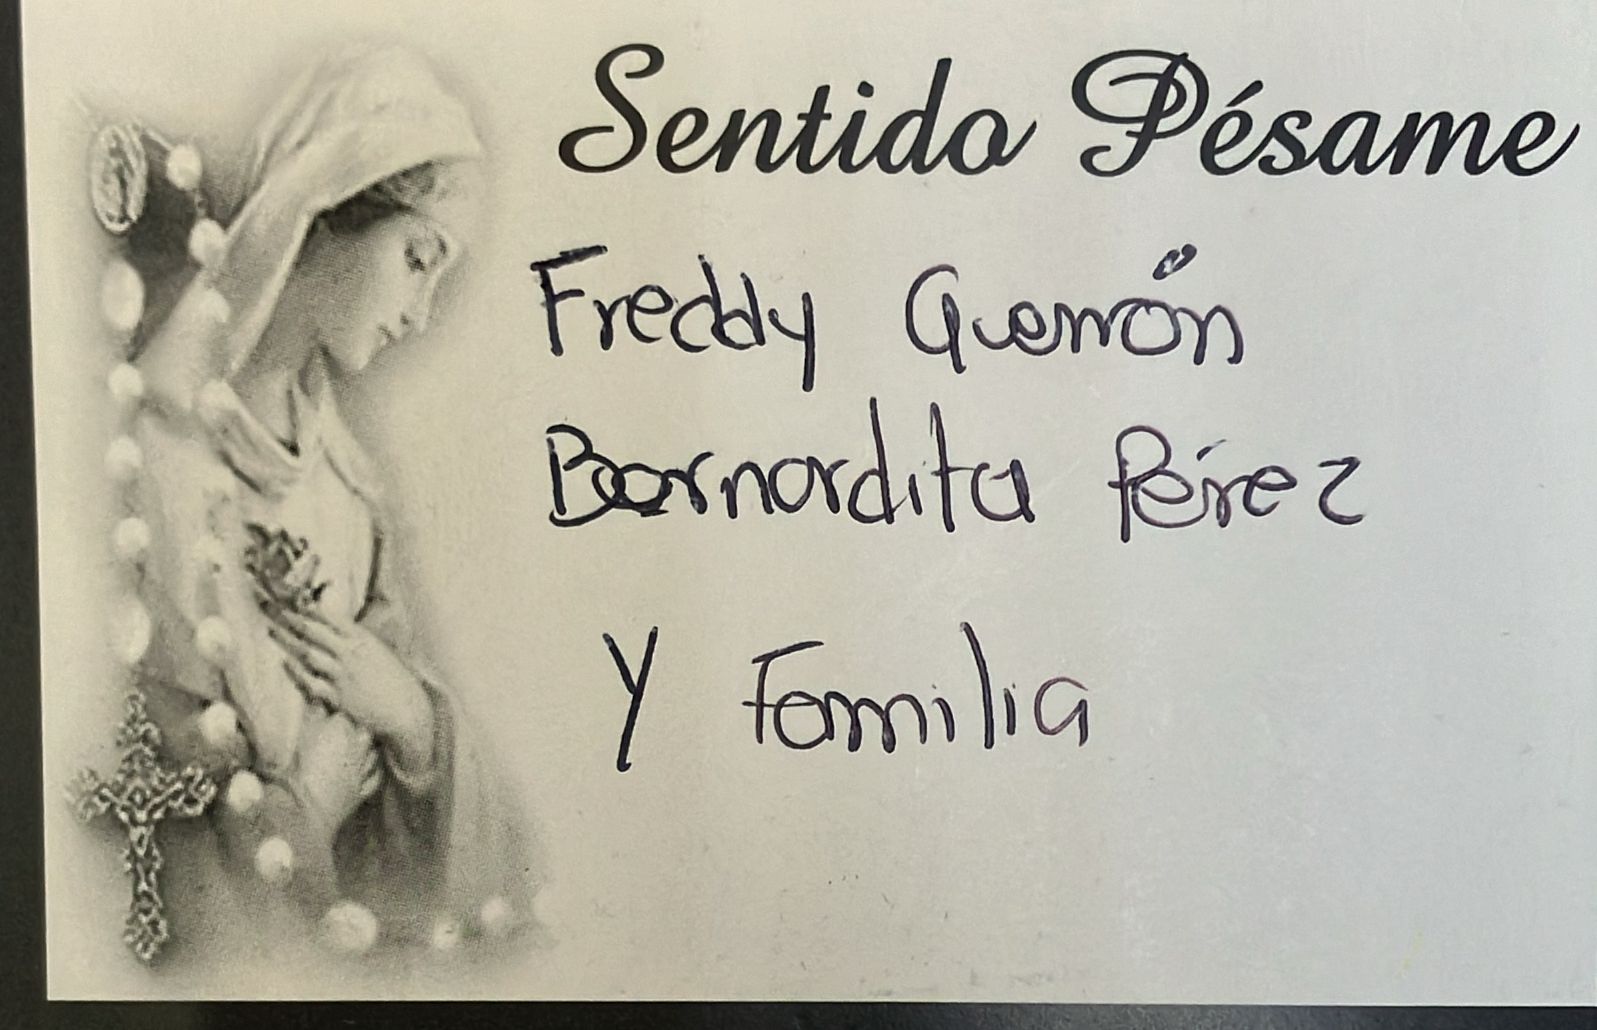 Sentido Pésame
Freddy Guerrón
Bernardita Pérez
Y Familia